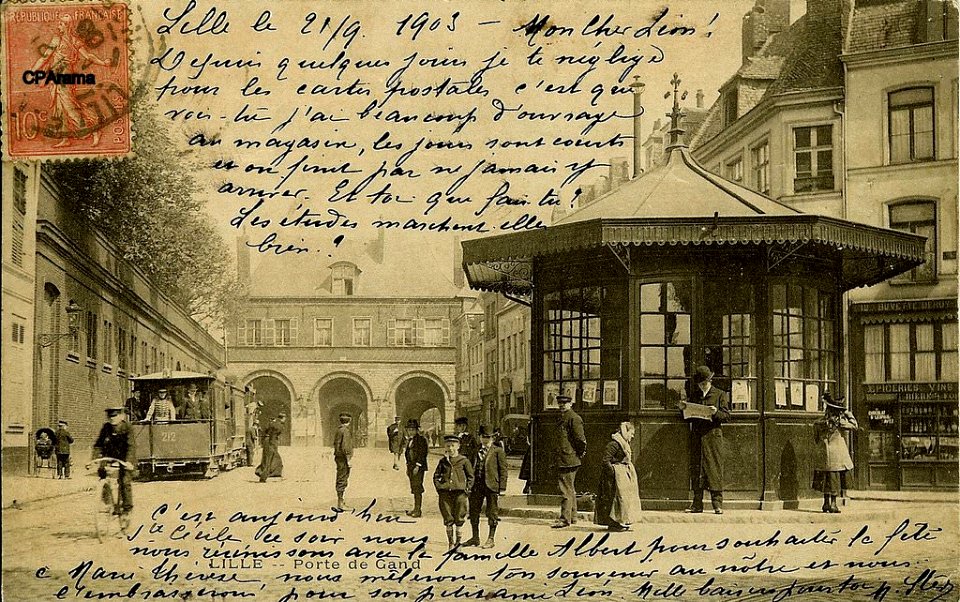 RÉPUBLIQUE FRANÇAISE
CPArama
10c POSTES
Lille le 21/9 1903 - Mon Cher Léon!
Depuis quelques jours je te néglige
pour les cartes postales c'est que
vois-tu j'ai beaucoup d'ouvrage
au magasin, les jours sont courts
et on finit par ne jamais y
arriver. Et toi que fais-tu?
Les études marchent elles
bien?
212
EPICERIES & VINS
C'est aujourd'hui
Ste Cécile ce soir nous
nous réunissons avec la famille Albert pour souhaiter la fête
LILLE -- Porte de Gand
à Marie Thérèse, nous mêlerons ton souvenir au nôtre et nous
l'embrasserons pour son petit ami Léon. Mille baisers pour toi